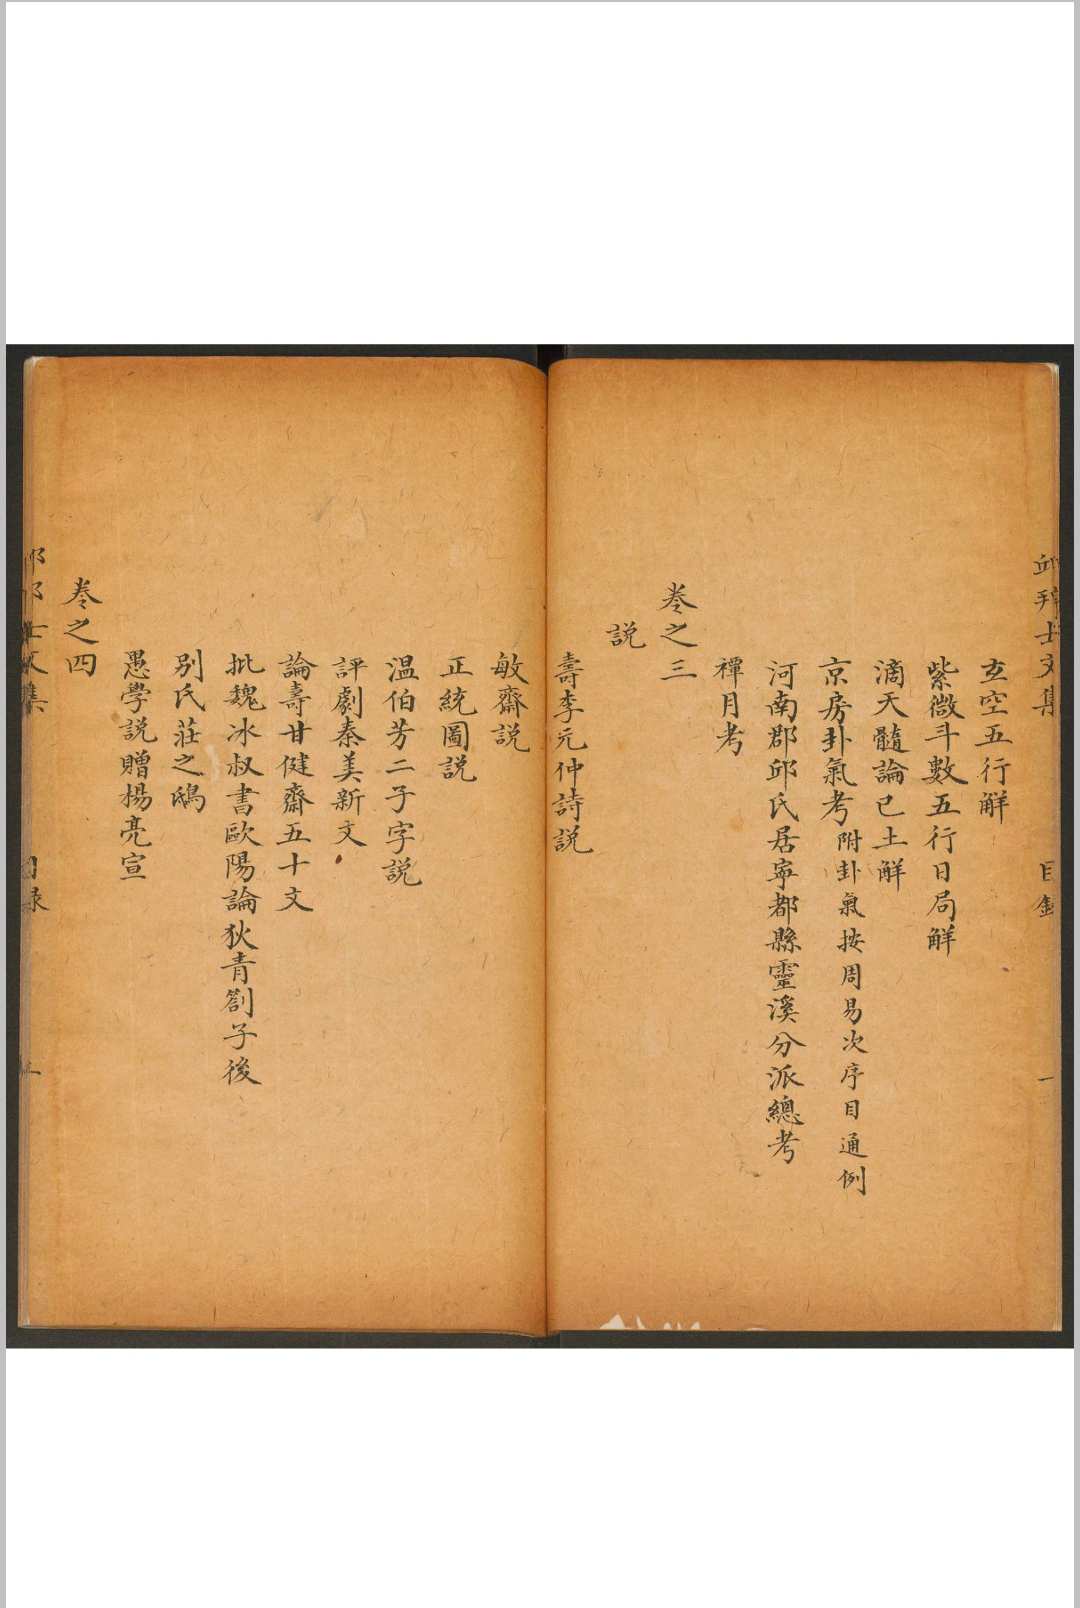 玄空五行解
紫微斗數五行日局解
滴天髓論已土解
京房卦氣考附卦氣按周易次序目通例
河南郡邱氏居寧都縣靈溪分派總考
禫月考
卷之三
説
壽李元仲詩説
敏齋説
正統圖説
温伯芳二子字説
評劇秦美新文
論壽甘健齋五十文
批魏冰叔書歐陽論狄青劄子後
别氏莊之鴟
愚學説贈楊亮宣
卷之四